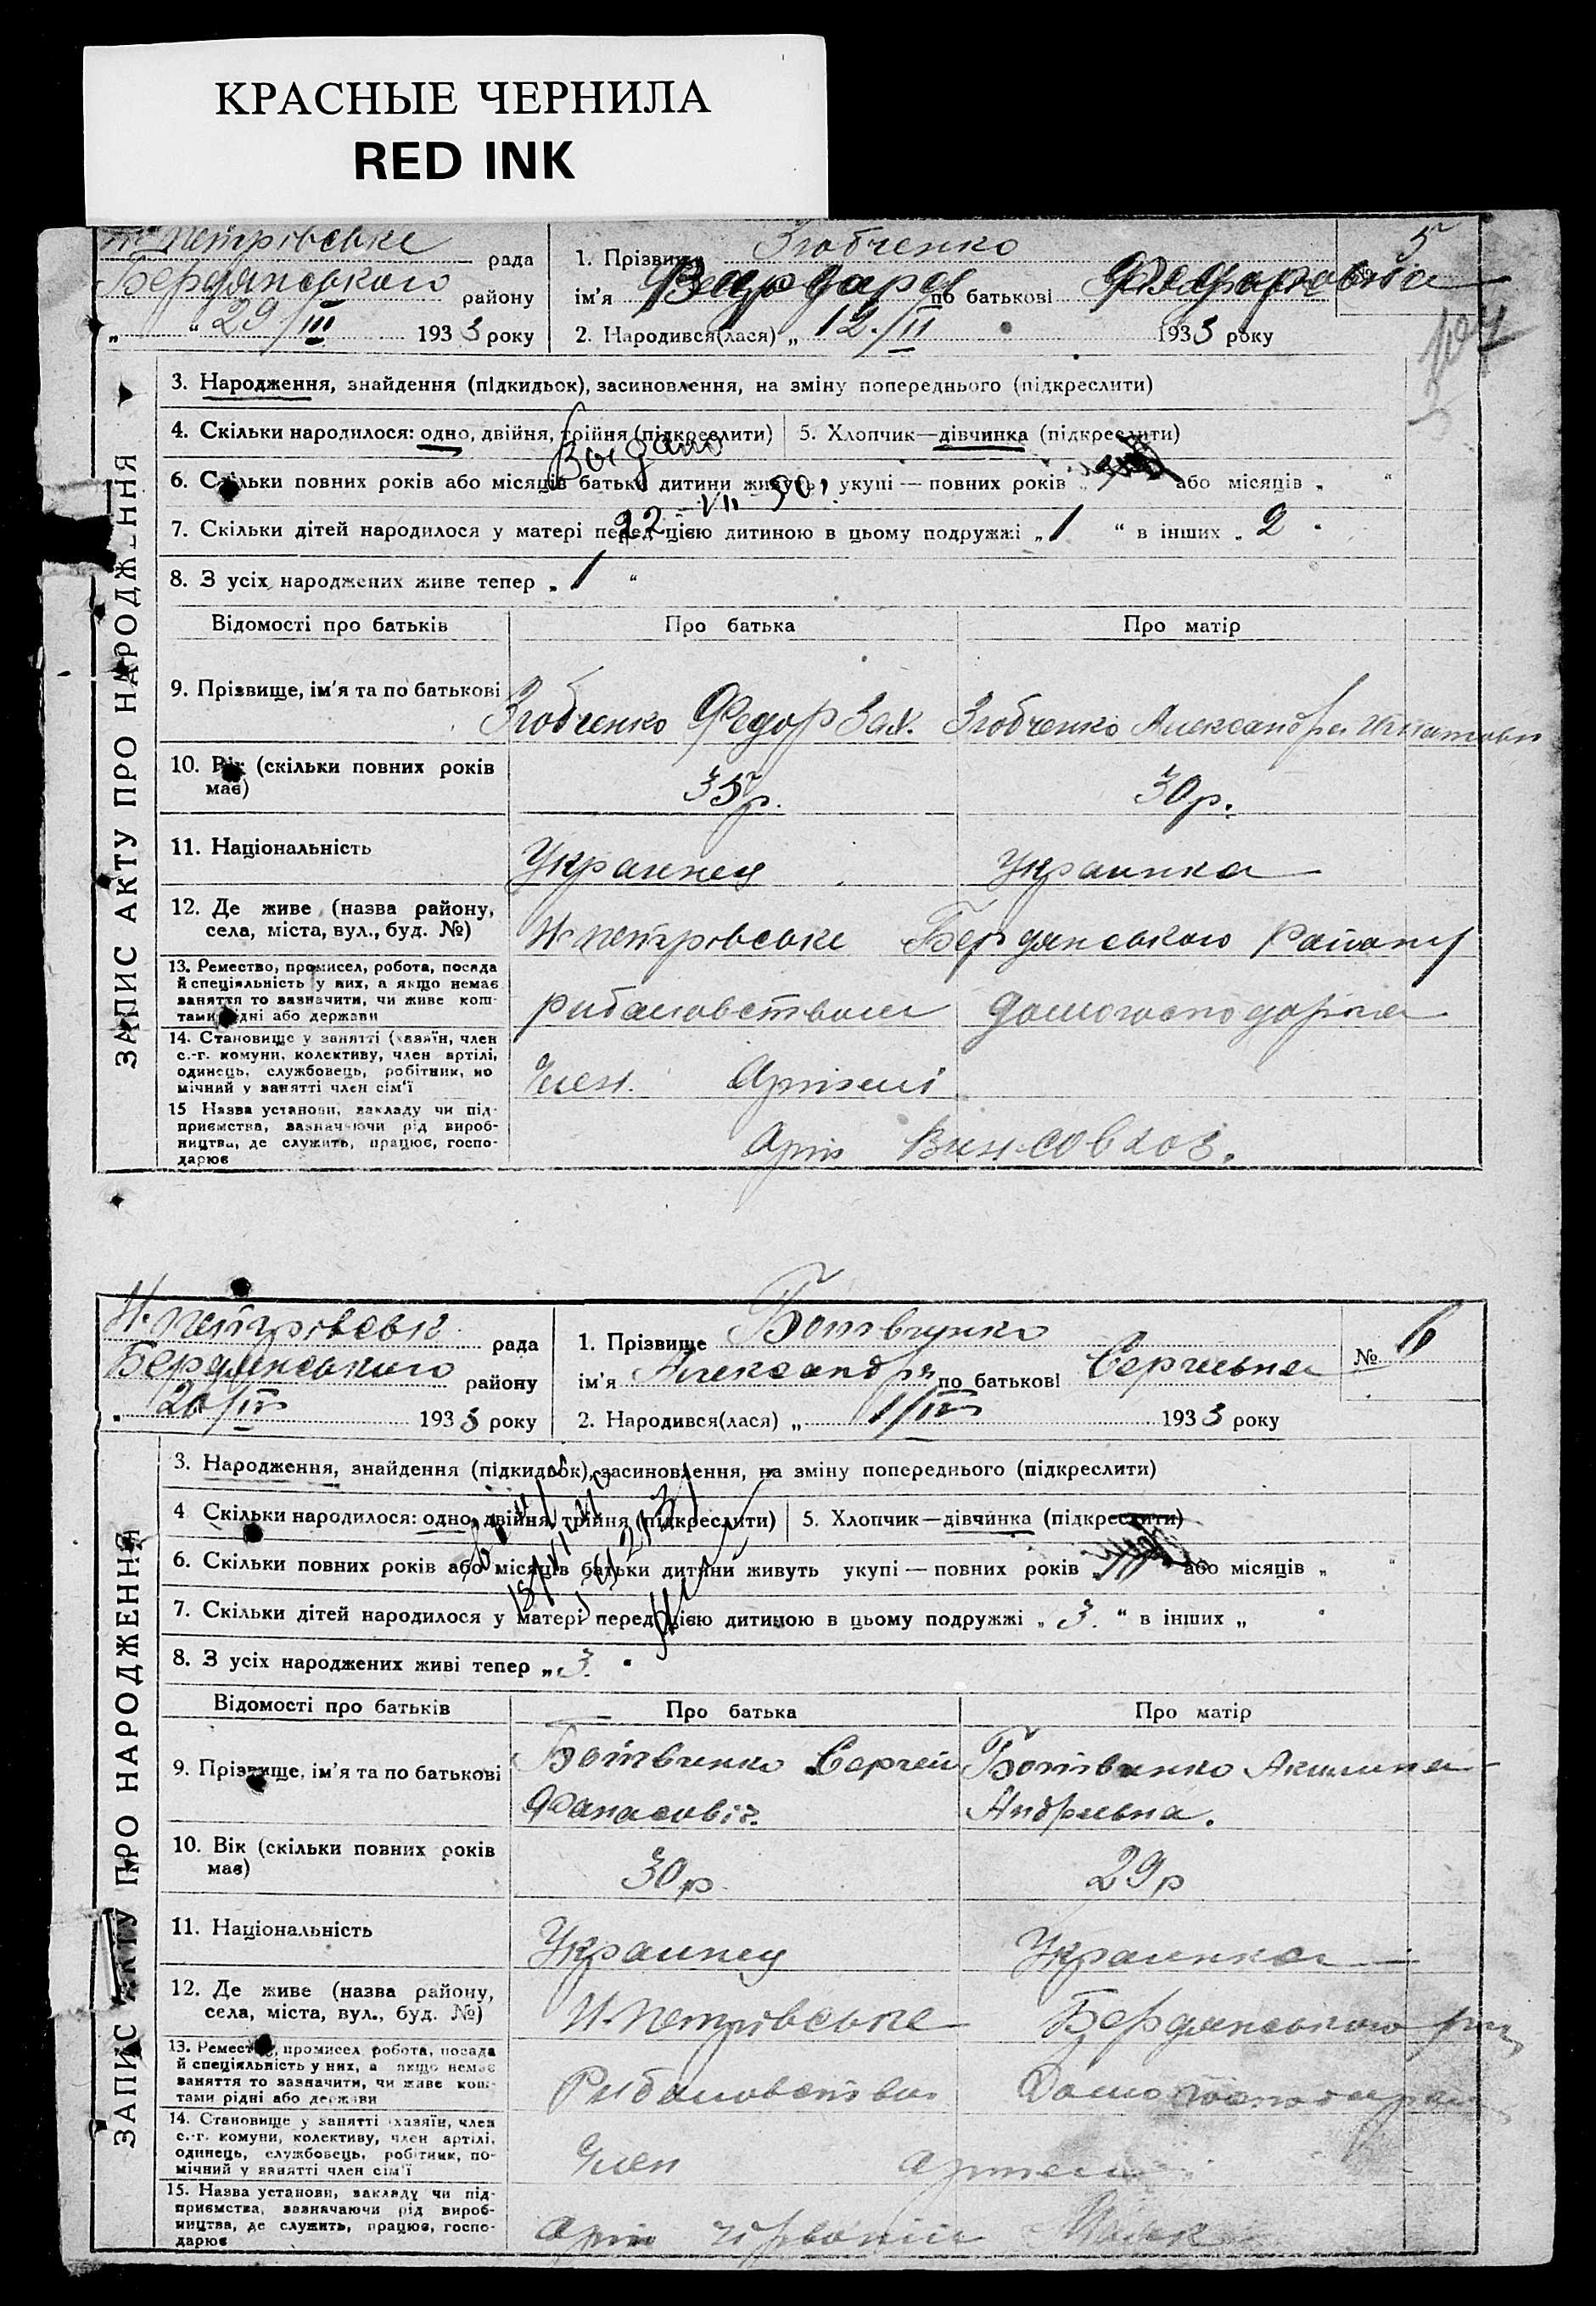 КРАСНЫЕ ЧЕРНИЛА
RED INK
петрівське рада
Бердянського району
" " 29/III 1933 року
1. Прізвище Злобченко
ім'я по батькові Федоровна
2. Народився(лася) „ 12/II 1933 року
5
ЗАПИС АКТУ ПРО НАРОДЖЕННЯ
3. Народження, знайдення (підкидьок), засиновлення, на зміну попереднього (підкреслити)
4. Скільки народилося: одно, двійня, трійня (підкреслити) 5. Хлопчик—дівчинка (підкреслити)
6. Скільки повних років або місяців батьки дитини живуть укупі — повних років „ або місяців „ “
7. Скільки дітей народилося у матері перед цією дитиною в цьому подружжі „ 1 “ в інших „ 2
8. З усіх народжених живе тепер „ 1 “
Відомості про батьків Про батька Про матір
9. Прізвище, ім'я та по батькові Злобченко Федор Зах. Злобченко Александра
10. Вік (скільки повних років має) 35 р. 30 р.
11. Національність Украинец Украинка
12. Де живе (назва району, села, міста, вул., буд. №) Н-петрівське Бердянського Району
13. Ремество, промисел, робота, посада й спеціяльність у них, а якщо немає заняття то зазначити, чи живе коштами рідні або держави рибаловством домогосподарка
14. Становище у занятті (хазяїн, член с.-г. комуни, колективу, член артілі, одинець, службовець, робітник, помічний у занятті член сім'ї Член Артілі
15 Назва установи, закладу чи підприємства, зазначаючи рід виробництва, де служить, працює, господарює Арт
Н. петрівськ рада
Бердянського району
„ 20/IV 1933 року
1. Прізвище Ботвинко
ім'я Александра по батькові Сергиевна
2. Народився(лася) „ 1/IV 1933 року
№ 6
ЗАПИС АКТУ ПРО НАРОДЖЕННЯ
3. Народження, знайдення (підкидьок), засиновлення, на зміну попереднього (підкреслити)
4 Скільки народилося: одно, двійня, трійня (підкреслити) 5. Хлопчик—дівчинка (підкреслити)
6. Скільки повних років або місяців батьки дитини живуть укупі — повних років „ або місяців „ “
7. Скільки дітей народилося у матері перед цією дитиною в цьому подружжі „ 3. “ в інших „
8. З усіх народжених живі тепер „ 3.
Відомості про батьків Про батька Про матір
9. Прізвище, ім'я та по батькові Ботвинко Сергей Фанасовіч. Ботвинко Акилина Андреевна.
10. Вік (скільки повних років має) 30 р 29 р
11. Національність Украинец Украинка
12. Де живе (назва району, села, міста, вул., буд. №) Н. петрівське Бердянського
13. Ремество, промисел робота, посада й спеціяльність у них, а якщо немає заняття то зазначити, чи живе коштами рідні або держави Рибаловство Домогосподарка
14. Становище у занятті (хазяїн, член с.-г. комуни, колективу, член артілі, одинець, службовець, робітник, помічний у занятті член сім'ї Член Артели
15. Назва установи, закладу чи підприємства, зазначаючи рід виробництва, де служить, працює, господарює Арт Маяк